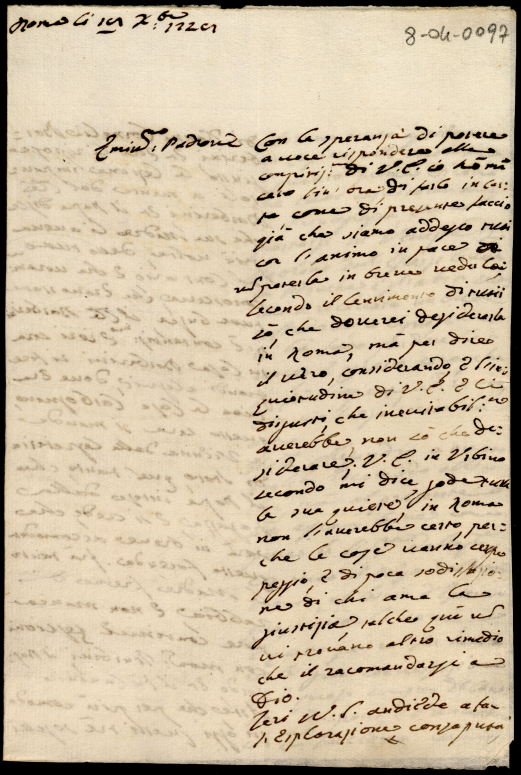 Roma li 19 Xbre 1729
8-04-0097
Emin:mo Padrone
Con la speranza di potere
a voce rispondere alla
di V.E. io hò mã
cato sin' ora di farlo in car-
ta come di presente faccio
già che siamo adesso tutti
con l'animo in pace di
nõ poterla in breve veder qui
secondo il sentimento di tutti
sò, che doverei desiderarla
in Roma, mà per dire
il vero, considerando l'in-
quietudine di V.E. e li
disgusti, che inevitabil:te
averebbe non sò che de-
siderare, V.E. in Urbino
secondo mi dice, gode tutta
la sua quiete, in Roma
non l'averebbe certo, per-
che le cose vanno sempre
peggio, e di poca sodisfazio-
ne di chi ama la
giustizia talche quì nõ
vi trovano altro rimedio
che il racomandarsi a
Dio.
Ieri N.S. andiede a fa-
l'Esplorazione consaputa